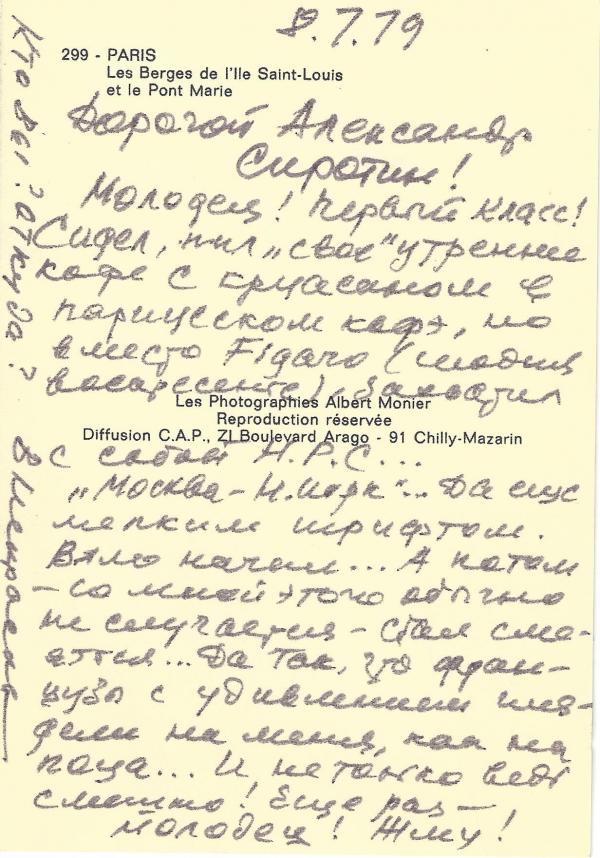 8.7.79
299 - PARIS
Les Berges de l'Ile Saint-Louis
et le Pont Marie
Дорогой Александр
Сиротин!
Молодец! Первый класс!
Сидел, пил „свое“ утреннее
кофе с круасаном в
парижском кафэ, но
вместо Figaro (сегодня
воскресенье), захватил
Les Photographies Albert Monier
Reproduction réservée
Diffusion C.A.P., ZI Boulevard Arago - 91 Chilly-Mazarin
с собой Н.Р.С...
„Москва – Н.Иорк“... Да еще
мелким шрифтом.
Вяло начал... А потом
– со мной этого обычно
не случается – стал сме-
яться... Да так, что фран-
цузы с удивлением гля-
дели на меня, как на
поца... И не только ведь
смешно! Еще раз –
молодец! Жму!
Кто Вы? Откуда?